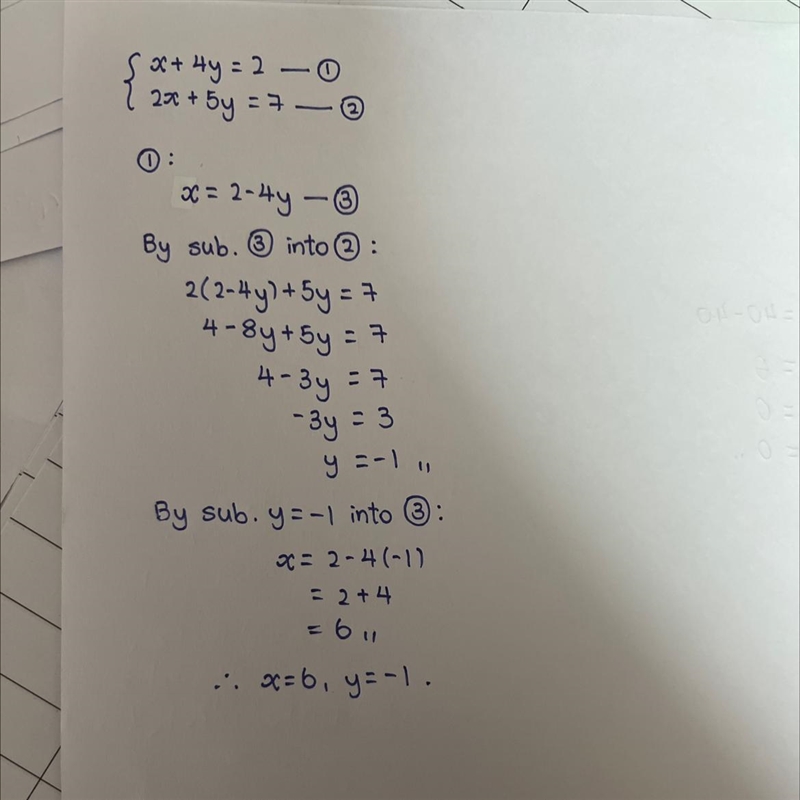 x + 4y = 2 — ①
2x + 5y = 7 — ②
①:
x = 2 - 4y — ③
By sub. ③ into ②:
2(2-4y) + 5y = 7
4 - 8y + 5y = 7
4 - 3y = 7
-3y = 3
y = -1 〃
By sub. y = -1 into ③:
x = 2 - 4(-1)
= 2 + 4
= 6 〃
∴ x = 6, y = -1.